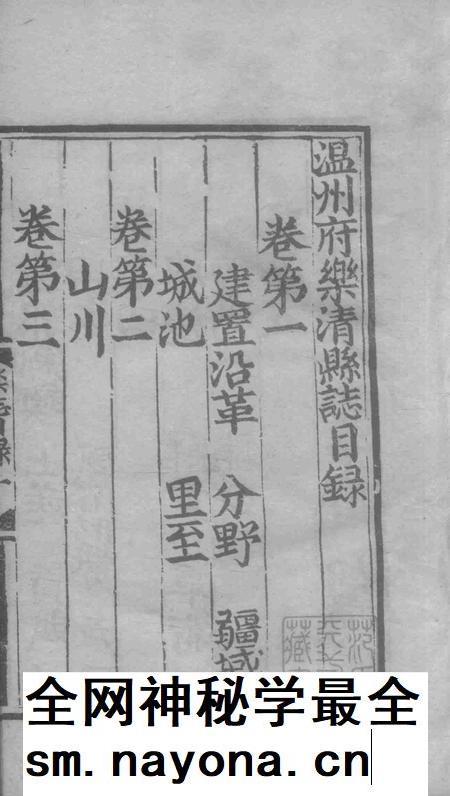 温州府樂清縣誌目録
卷第一
建置沿革 分野 疆域
城池 里至
卷第二
山川
卷第三
全网神秘学最全
sm.nayona.cn